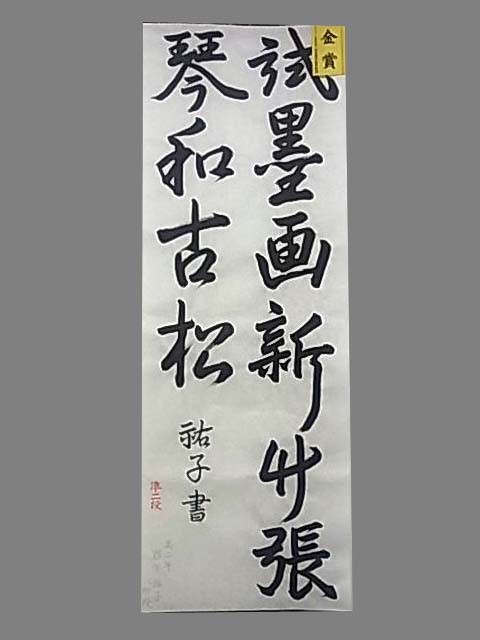 試墨画新竹張
琴和古松
祐子書
金賞
準二段